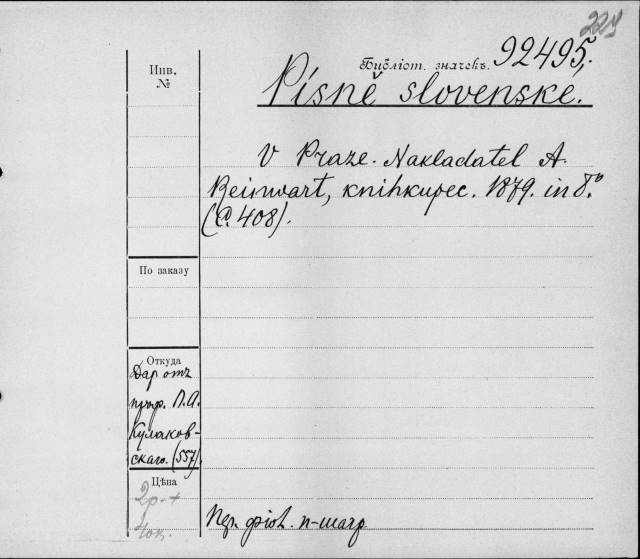 224
Библіот. значекъ. 92495.
Инв.
№
Písně slovenske.
V Praze. Nakladatel A.
Reinwart, knihkupec. 1879. in 8.º
(C. 408).
По заказу
Откуда
Даръ отъ
проф. П.А.
Кулаков-
скаго. (557).
Цѣна
2р. +
40к.